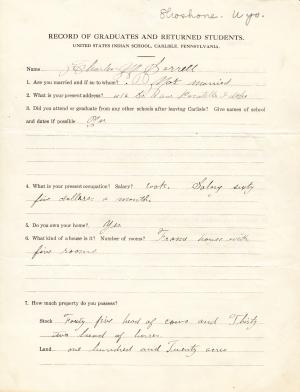 Shoshone. Wyo.
RECORD OF GRADUATES AND RETURNED STUDENTS.
UNITED STATES INDIAN SCHOOL, CARLISLE, PENNSYLVANIA.
Name Charles
1. Are you married and if so to whom? Not married
2. What is your present address?
3. Did you attend or graduate from any other schools after leaving Carlisle? Give names of school
and dates if possible No
4. What is your present occupation? Salary? Cook. Salary sixty
five dollars a month.
5. Do you own your home? Yes.
6. What kind of a house is it? Number of rooms? Frame house with
five rooms
7. How much property do you possess?
Stock Fourty five head of cows and Thirty
two head of horses
Land one hundred and Twenty acres